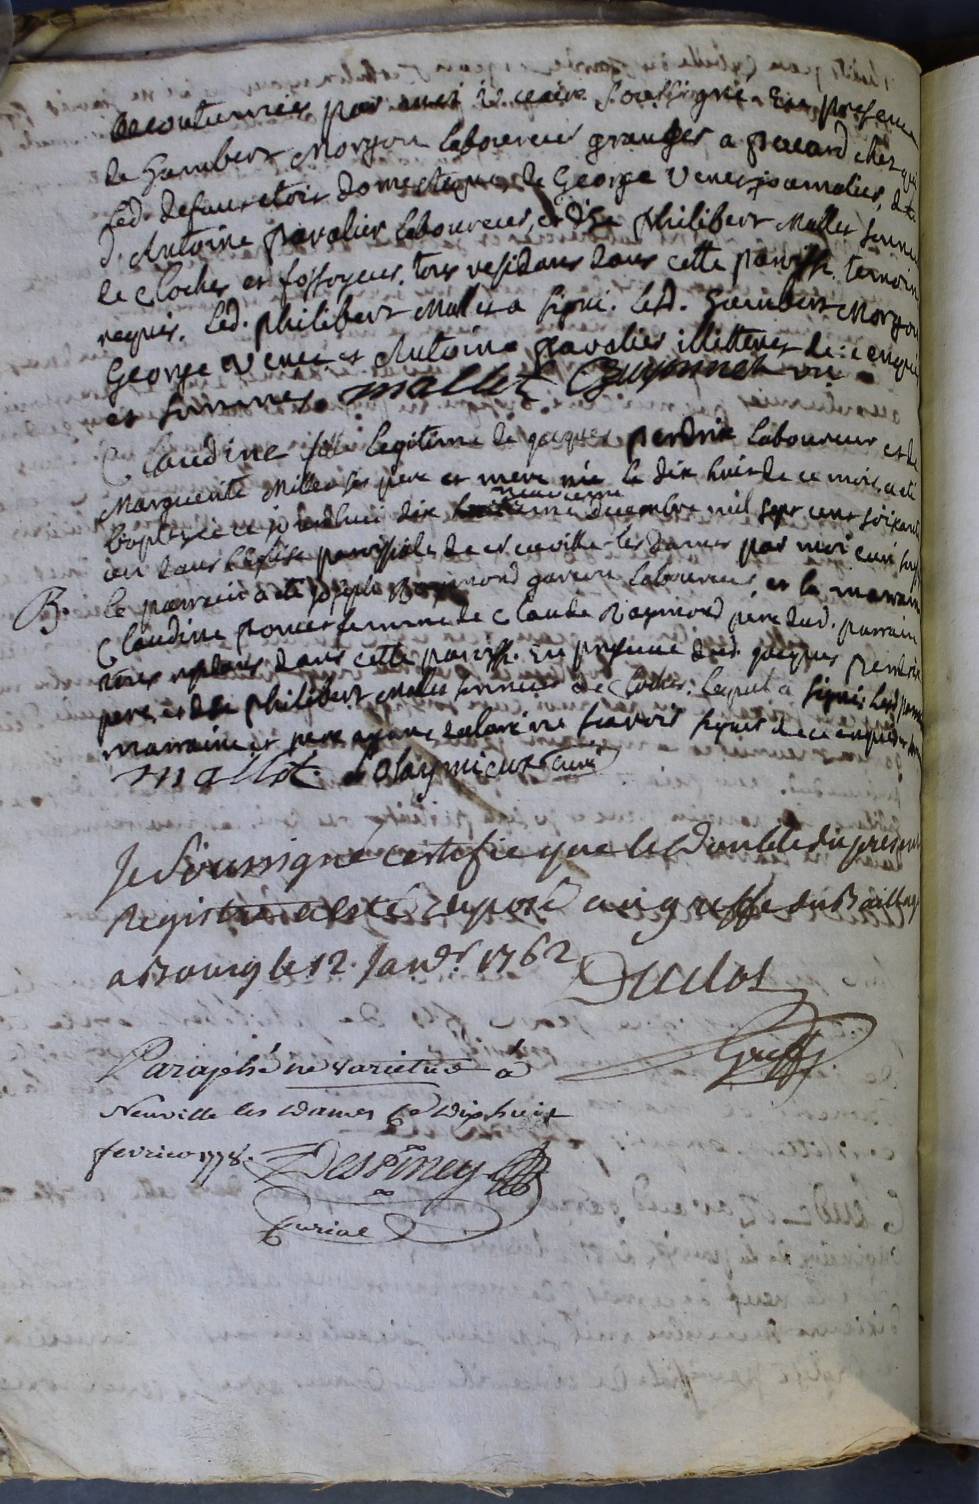 accoutumées par moi vicaire soussigné. En presence
de Humbert Morgon laboureur granger a            chez qui
led. defunt etoit domestique de George Venet journalier, de
d. Antoine pavalier laboureur, et de philibert Mallet sonneur
de cloches et fossoyeur. tous residans dans cette paroisse. temoins
requis. led. philibert Mallet a signé. lesd. humbert Morgon
George Venet et Antoine pavalier illitterés de ce enquis
et sommés. mallet Guyonnet vic
Claudine fille legitime de jacques perdrix laboureur et de
Marguerite Millet ses pere et mere née le dix huit de ce mois, a eté
baptisée ce jourdhui dix neuvieme decembre mil sept cent soixante
un dans l'Eglise paroissiale de neuville les dames par moi curé sousg
B. le parrain a eté joseph Raymond garcon laboureur et la marraine
Claudine         femme de Claude Raymond pere dud. parrain
tous residans dans cette paroisse. En presence dud. jacques perdrix
pere, et de philibert Mallet sonneur de cloches. lequel a signé. lesd. parrain
marraine et pere ayant declaré ne scavoir signer de ce enquis
mallet.              curé
Je soussigné certifie que le double du present
Registre a esté deposé au greffe du Bailliage
a Bourg le 12. Janvr. 1762
Duclos
Greff.
Paraphé ne varietur à
Neuville les dames le dix huit
fevrier 1778. Despiney
Curial